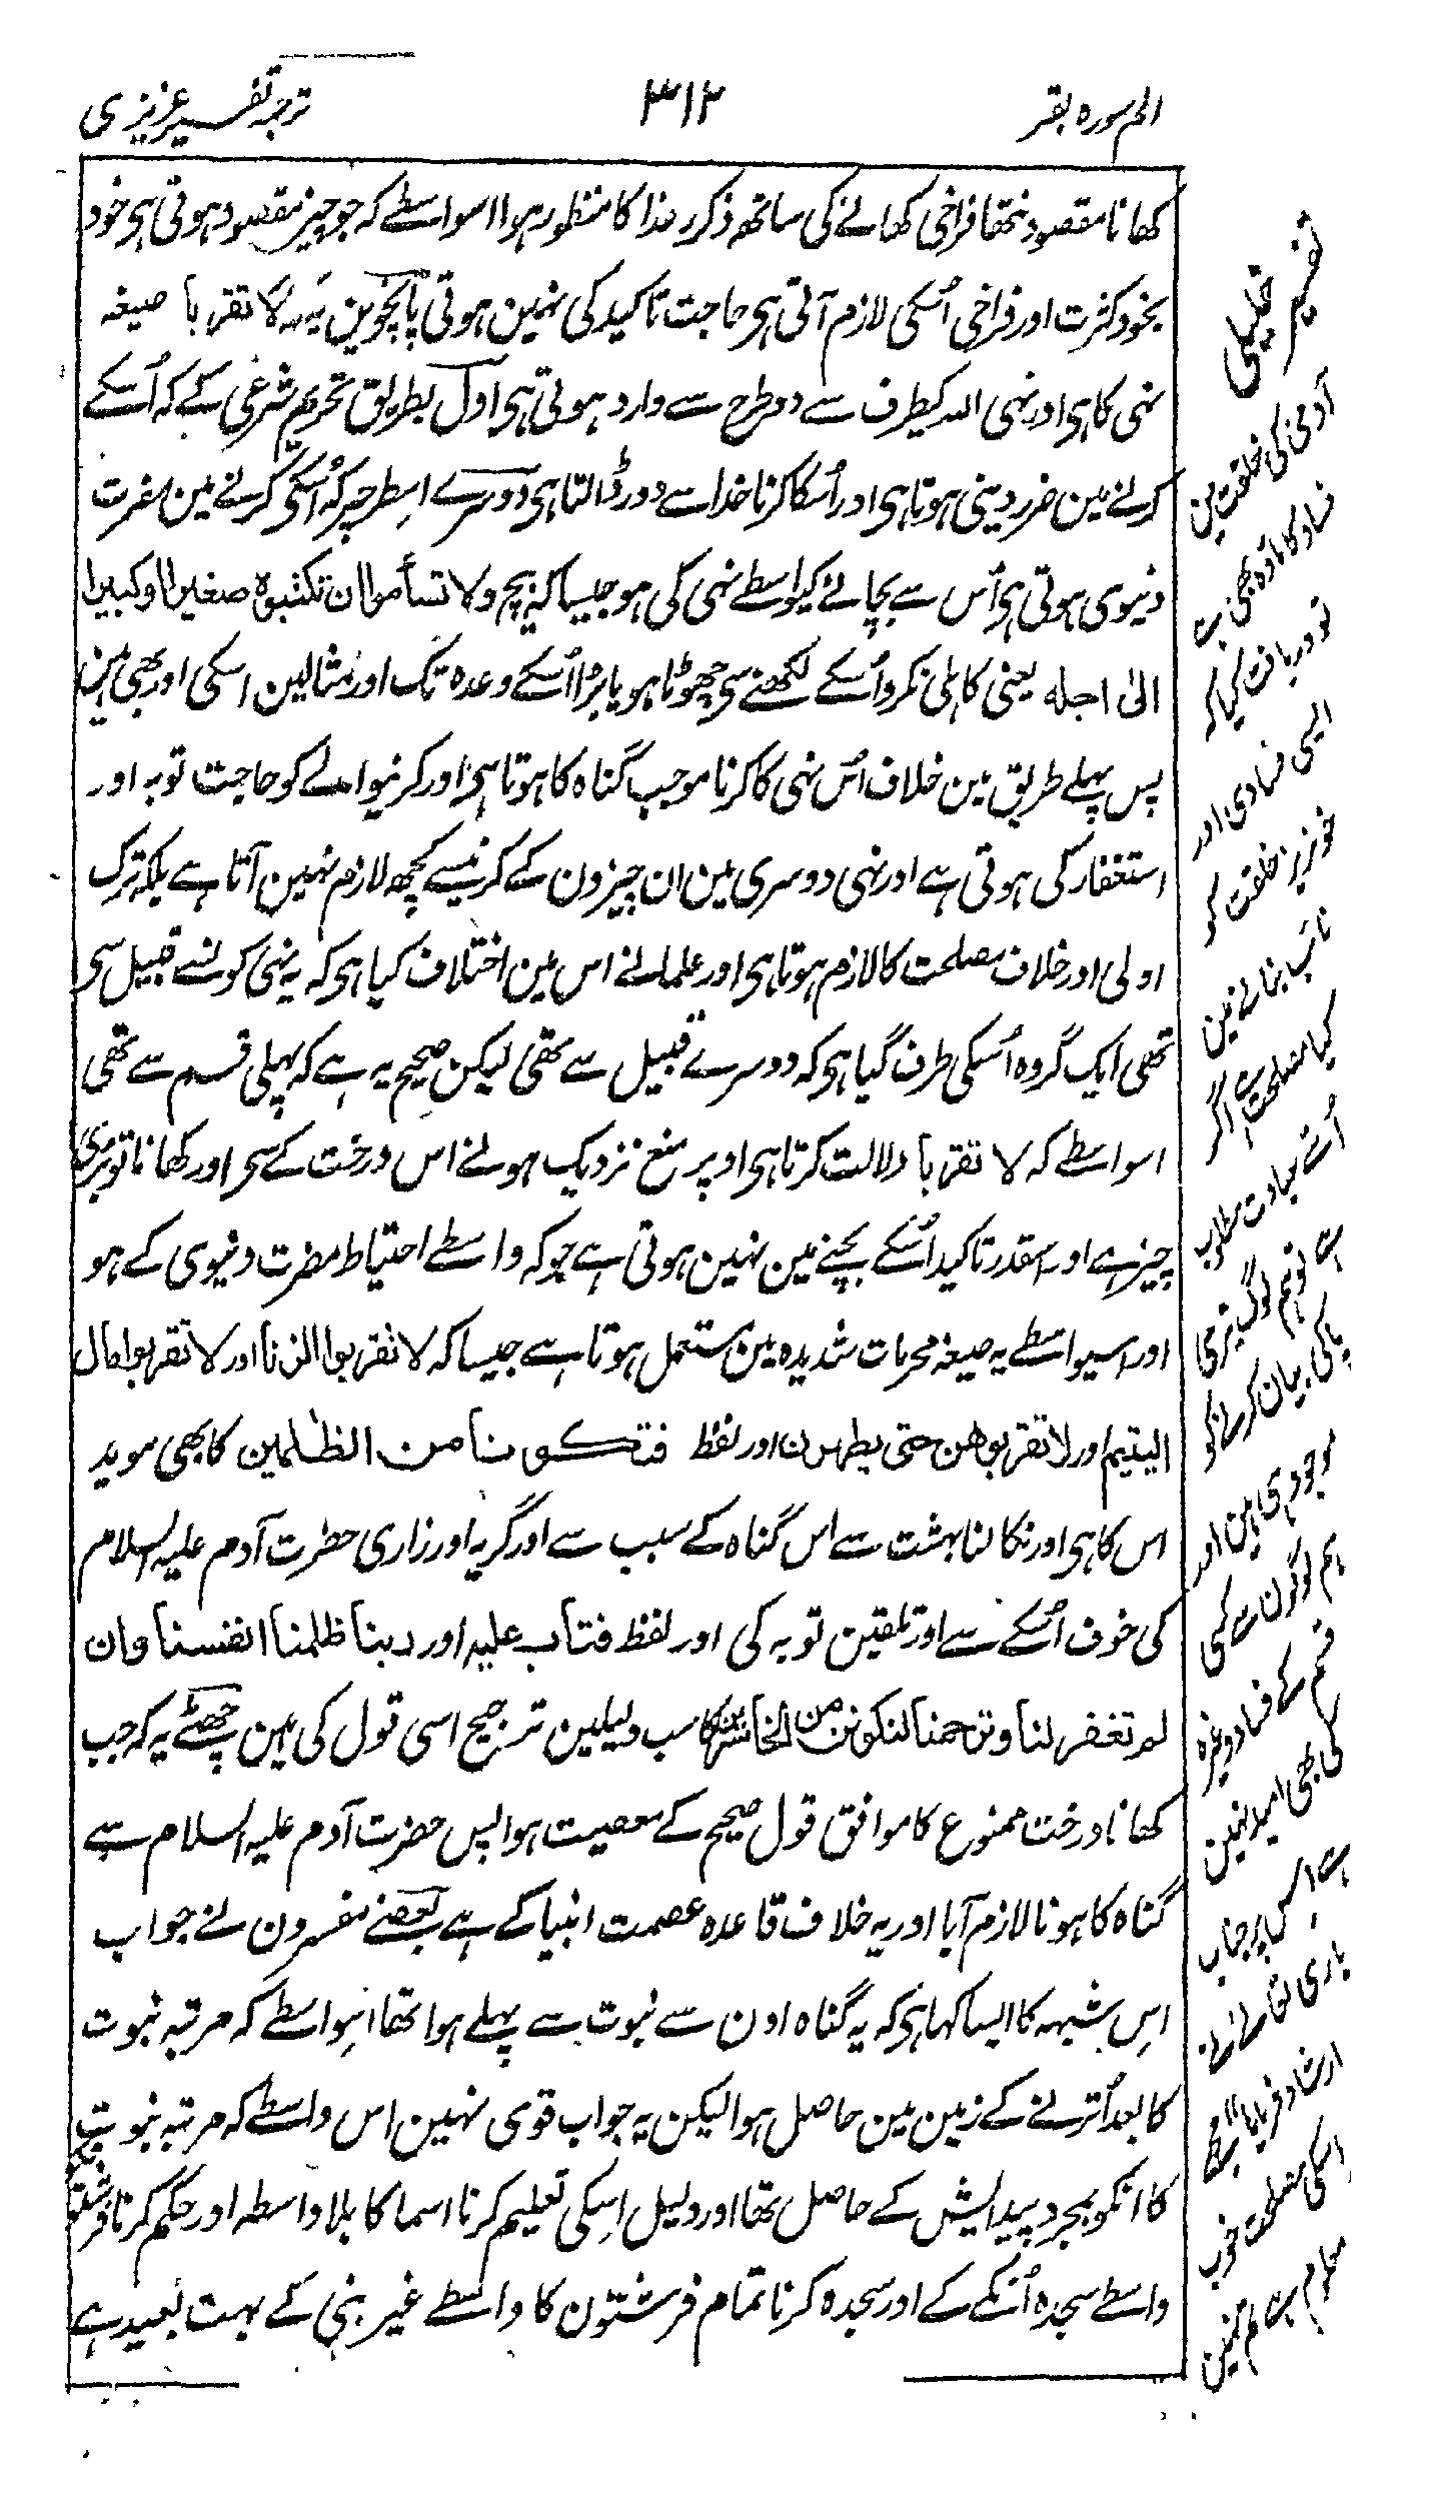 الم سوره بقر
۳۱۲
ترجمہ تفسیر عزیزی
کھانا مقصود نتھا فراخی کھانے کی ساتھ ذکر رغدا کا منظور ہوا اسواسطے کہ جو چیز مقصود ہوتی ہی خود
بخود کثرت اور فراخی اُسکی لازم آتی ہی حاجت تاکید کی نہین ہوتی پانچوین یہ لا تقربا صیغہ
نہی کا ہی اور نہی اللہ کیطرف سے دو طرح سے وارد ہوتی ہی اول بطریق تحریم شرعی کے کہ اُسکے
کرنے مین ضرر دینی ہوتا ہی اور اُسکا کرنا خدا سے دور ڈالتا ہی دوسرے اسطرحپر کہ اُسکی کرنے مین مضرت
دنیوی ہوتی ہی اُس سے بچانے کیواسطے نہی کی ہو جیسا کہ بیچ ولا تسأموا ان تکتبوہ صغیرا او کبیرا
الیٰ اجلہ یعنی کاہلی نکرو اُسکے لکھنے سی چھوٹا ہو یا بڑا اُسکے وعدہ تک اور مثالین اسکی اور بھی ہین
پس پہلے طریق مین خلاف اُس نہی کا کرنا موجب گناہ کا ہوتا ہی اور کرنیوالے کو حاجت توبہ اور
استغفار کی ہوتی ہے اور نہی دوسری مین ان چیزون کے کرنیسے کچھ لازم نہین آتا ہے بلکہ ترک
اولی اور خلاف مصلحت کا لازم ہوتا ہی اور علما نے اس مین اختلاف کیا ہی کہ یہ نہی کونسے قبیل سی
تھی ایک گروہ اُسکی طرف گیا ہی کہ دوسرے قبیل سے تھی لیکن صحیح یہ ہے کہ پہلی قسم سے تھی
اسواسطے کہ لا تقربا دلالت کرتا ہی اوپر منع نزدیک ہونے اس درخت کے سی اور کھانا تو بڑی
چیز ہے اور اسقدر تاکید اُسکے بچنے مین نہین ہوتی ہے جو کہ واسطے احتیاط مضرت دنیوی کے ہو
اور اسیواسطے یہ صیغہ محرمات شدیدہ مین مستعمل ہوتا ہے جیسا کہ لا تقربوا الزنا اور لا تقربوا مال
الیتیم اور لا تقربوھن حتی یطہرن اور لفظ فتکونا من الظلمین کا بھی موید
اس کا ہی اور نکالنا بہشت سے اس گناہ کے سبب سے اور گریہ اور زاری حضرت آدم علیہ السلام
کی خوف اُسکے سے اور تلقین توبہ کی اور لفظ فتاب علیہ اور ربنا ظلمنا انفسنا وان
لم تغفر لنا وترحمنا لنکونن من الخاسرین کا سب دلیلین ترجیح اسی قول کی ہین چھٹے یہ کہ جب
کھانا درخت ممنوع کا موافق قول صحیح کے معصیت ہوا پس حضرت آدم علیہ السلام سے
گناہ کا ہونا لازم آیا اور یہ خلاف قاعدہ عصمت انبیا کے ہے بعضے مفسرون نے جواب
اِس شبہہ کا ایسا کہا ہی کہ یہ گناہ اون سے نبوت سے پہلے ہوا تھا اسواسطے کہ مرتبہ نبوت
کا بعد اُترنے کے زمین مین حاصل ہوا لیکن یہ جواب قوی نہین اس واسطے کہ مرتبہ نبوت
کا انکو بمجرد پیدایش کے حاصل تھا اور دلیل اسکی تعلیم کرنا اسما کا بلا واسطہ اور حکم کرنا فرشتو
واسطے سجدہ اُنکے کے اور سجدہ کرنا تمام فرشتون کا واسطے غیر نبی کے بہت بعید ہے
تفسیر خلیلی
آدمی کی خلقت مین
فساد کا مادہ بھی ہے
تو دریافت کیا کہ
ایسی فسادی اور
خونریز خلقت کو
نائب بنانے مین
کیا مصلحت ہے اگر
اُسے عبادت مطلوب
ہے تو ہم لوگ تیری
پاکی بیان کرنے کو
موجود ہی ہین اور
ہم لوگون سے کسی
قسم کے فساد وغیرہ
کی بھی امید نہین
ہے اس پر جناب
باری تعالے نے
ارشاد فرمایا مجھے
اسکی مصلحت خوب
معلوم ہے تم نہین